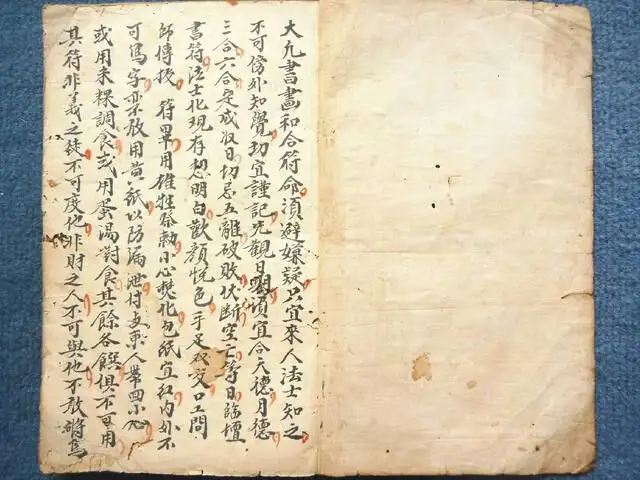 大凡書畫和合符命須避嫌疑只宜來人法士知之
不可傍外知覺切宜謹記先觀日期須宜合天德月德
三合六合定成收日切忌五離破敗伏断空亡等日臨壇
書符法士化現存想明白歡顔悦色手足双交口工問
師傳授符畢用雄牲祭勅小心焚化包紙宜紅内外不
可寫字票敖用黄紙以防漏泄付與東人帶回小心
或用米粿調食或用蛋湯對食其餘各饌俱不可用
其符非義之徒不可度他非財之人不可與他不敖